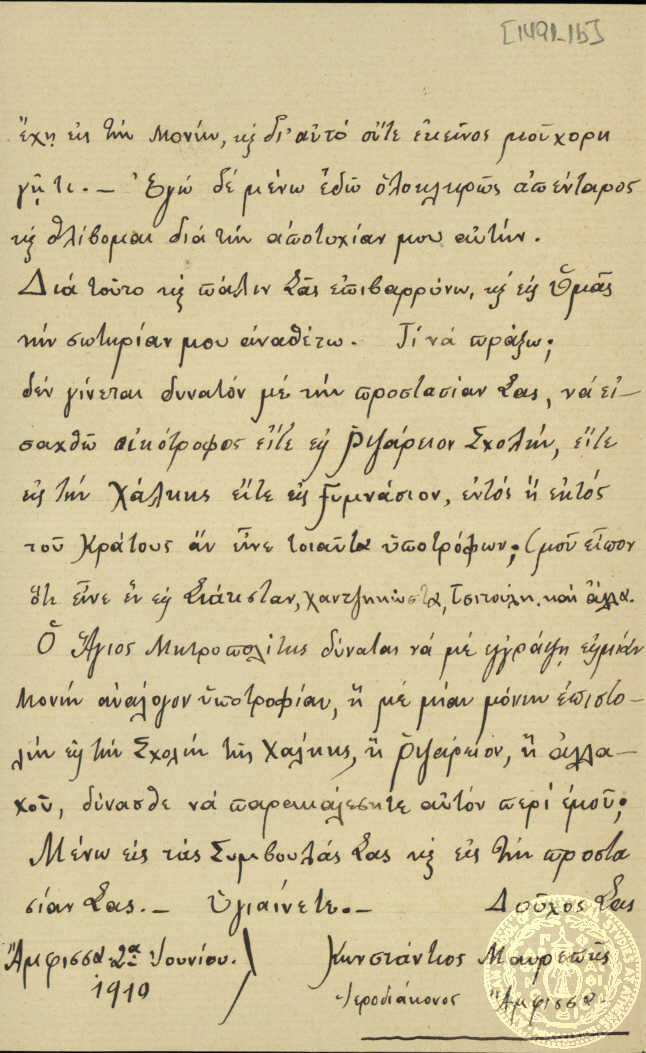 [1491-1b]
ἔχῃ εἰς τὴν Μονήν, κ̀ δι' αὐτό οὔτε ἐκεῖνος μοῦ χορη
γῇ τι. — Ἐγώ δέ μένω ἐδῶ ὁλοκληρῶς ἀπένταρος
κ̀ θλίβομαι διά τήν ἀποτυχίαν μου αὐτήν.
Διά τοῦτο κ̀ πάλιν Σᾶς ἐπιβαρρύνω, κ̀ εἰς Ὑμᾶς
τήν σωτηρίαν μου ἀναθέτω. Τί νά πράξω;
δέν γίνεται δυνατόν μέ τήν προστασίαν Σας, νά εἰ-
σαχθῶ οἰκότροφος εἴτε εἰς Ῥιζάρειον Σχολήν, εἴτε
εἰς τήν Χάλκης εἴτε εἰς Γυμνάσιον, ἐντός ἤ ἐκτός
τοῦ Κράτους ἄν εἶνε τοιαῦτα ὑποτρόφων; (μοῦ εἶπον
ὅτι εἶνε ἕν εἰς Σιάτισταν, Χαντζηκώστα, Τσιτούλη. καί ἄλλα.
Ὁ Ἅγιος Μητροπολίτης δύναται νά μέ ἐγγράψῃ εἰς μίαν
Μονήν ἀνάλογον ὑποτροφίαν, ἤ μέ μίαν μόνην ἐπιστο-
λήν εἰς τήν Σχολήν τῆς Χάλκης, ἤ Ῥιζάρειον, ἤ ἀλλα-
χοῦ, δύνασθε νά παρεκαλέσητε αὐτόν περί ἐμοῦ;
Μένω εἰς τάς Συμβουλάς Σας κ̀ εἰς τήν προστα
σίαν Σας. — Ὑγιαίνετε. — Δοῦλος Σας
Ἄμφισσα 2α Ἰουνίου. Κωνστάντιος Μαυρεπῆς
1910 Ἱεροδιάκονος Ἄμφισσα.